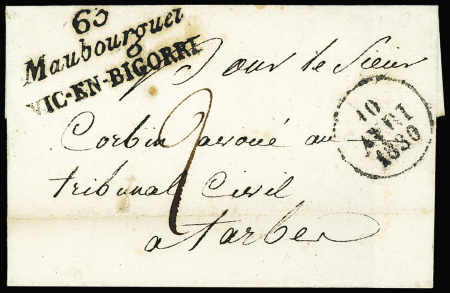 65
Maubourguet
VIC-EN-BIGORRE
Pour le Sieur
10
AVRI
1830
Corbin avoué au
tribunal Civil
2
a tarbes